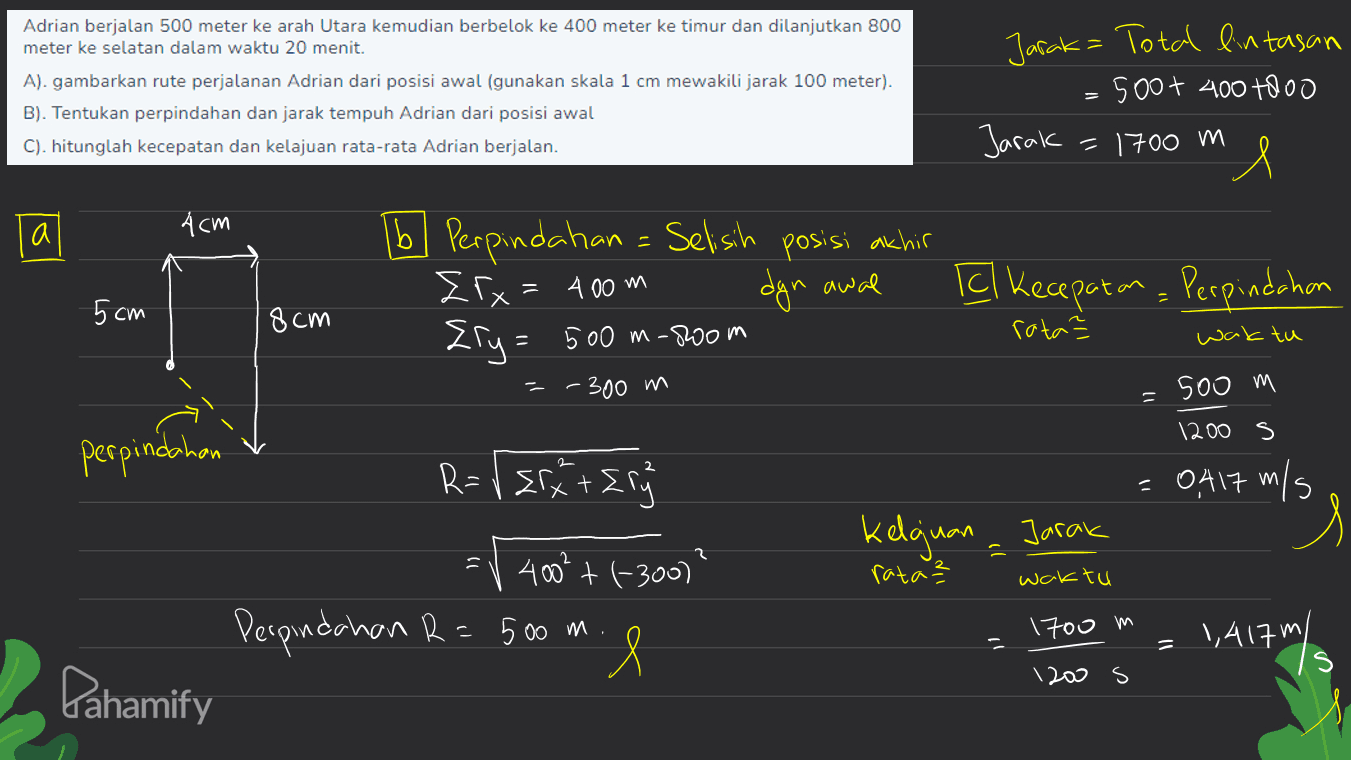 Adrian berjalan 500 meter ke arah Utara kemudian berbelok ke 400 meter ke timur dan dilanjutkan 800
meter ke selatan dalam waktu 20 menit.
A). gambarkan rute perjalanan Adrian dari posisi awal (gunakan skala 1 cm mewakili jarak 100 meter).
B). Tentukan perpindahan dan jarak tempuh Adrian dari posisi awal
C). hitunglah kecepatan dan kelajuan rata-rata Adrian berjalan.
Jarak = Total lintasan
= 500+ 400+800
Jarak = 1700 m
a
4cm
5 cm
8cm
perpindahan
b Perpindahan = Selisih posisi akhir
dgn awal
Σrx = 400 m
Σry = 500 m -800m
= -300 m
R = √Σrx² + Σry²
= √400² + (-300)²
Perpindahan R = 500 m.
c Kecepatan rata² = Perpindahan / waktu
= 500 m / 1200 s
= 0,417 m/s
Kelajuan rata² = Jarak / waktu
= 1700 m / 1200 s = 1,417 m/s
Pahamify